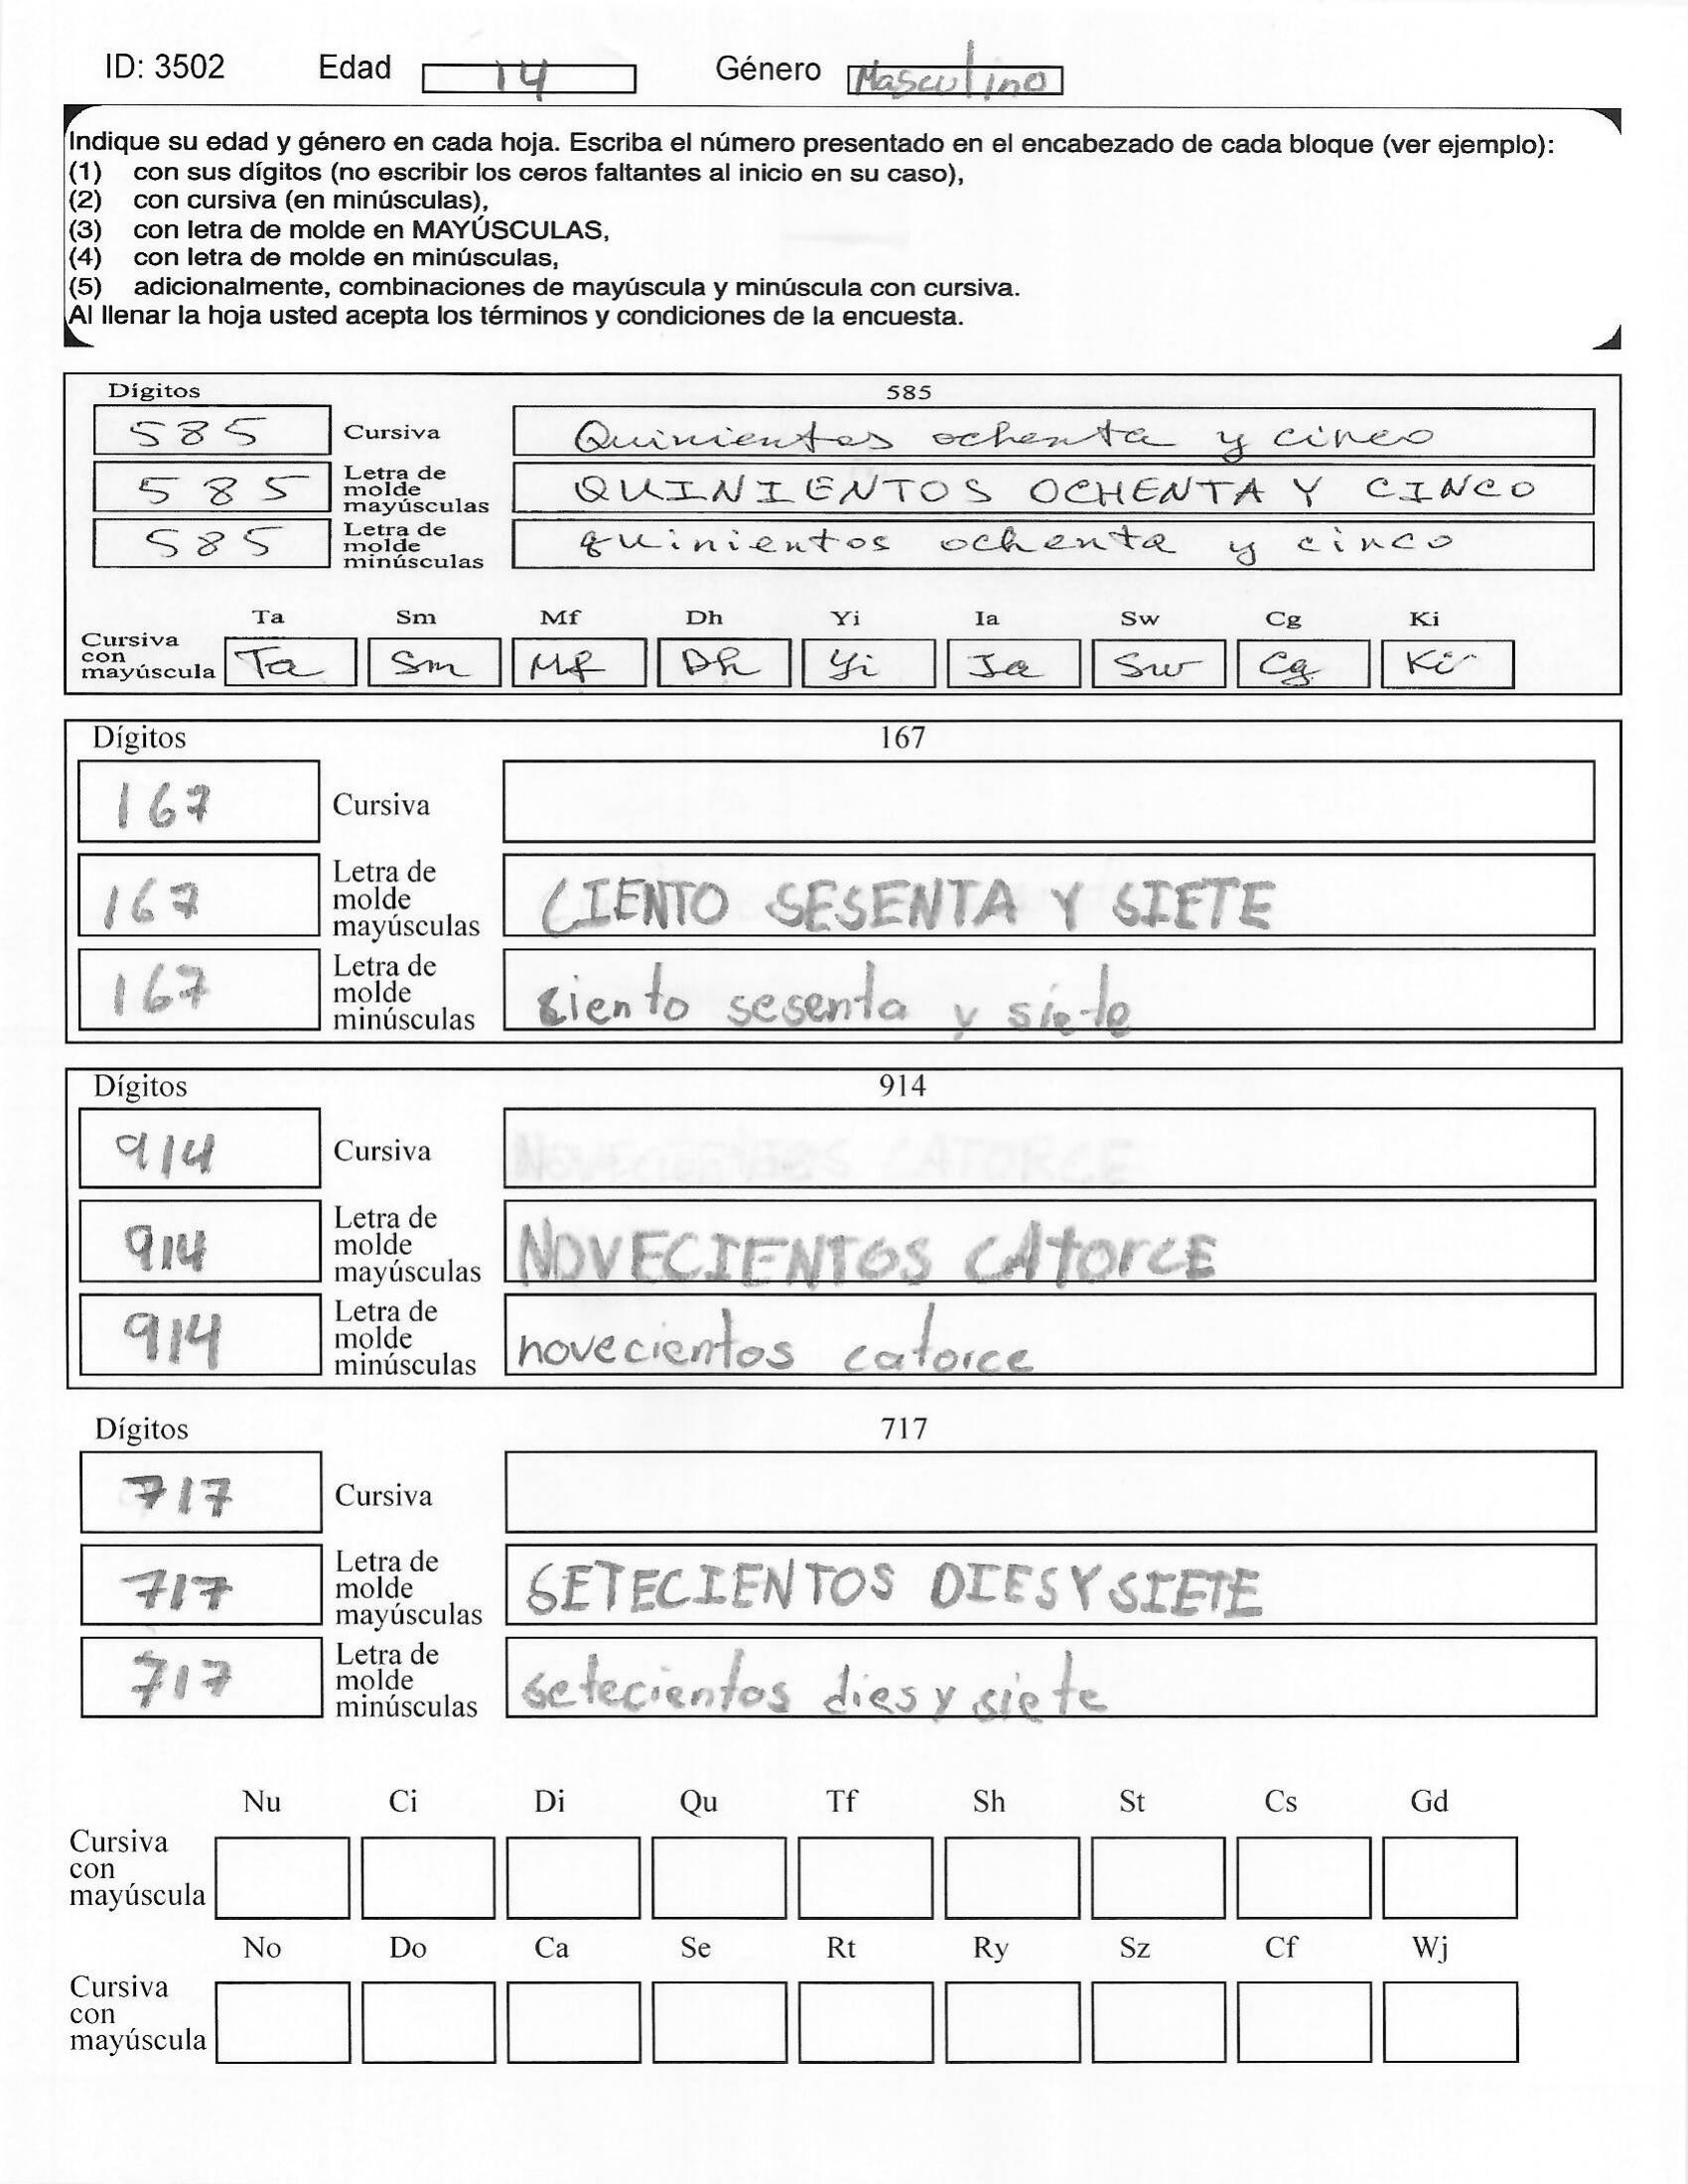 ID: 3502 Edad 14 Género Masculino
Indique su edad y género en cada hoja. Escriba el número presentado en el encabezado de cada bloque (ver ejemplo):
(1) con sus dígitos (no escribir los ceros faltantes al inicio en su caso),
(2) con cursiva (en minúsculas),
(3) con letra de molde en MAYÚSCULAS,
(4) con letra de molde en minúsculas,
(5) adicionalmente, combinaciones de mayúscula y minúscula con cursiva.
Al llenar la hoja usted acepta los términos y condiciones de la encuesta.
Dígitos 585
585 Cursiva Quinientos ochenta y cinco
585 Letra de molde mayúsculas QUINIENTOS OCHENTA Y CINCO
585 Letra de molde minúsculas quinientos ochenta y cinco
Ta Sm Mf Dh Yi Ia Sw Cg Ki
Cursiva con mayúscula Ta Sm Mf Dh Yi Ia Sw Cg Ki
Dígitos 167
167 Cursiva
167 Letra de molde mayúsculas CIENTO SESENTA Y SIETE
167 Letra de molde minúsculas siento sesenta y siete
Dígitos 914
914 Cursiva
914 Letra de molde mayúsculas NOVECIENTOS CATORCE
914 Letra de molde minúsculas novecientos catorce
Dígitos 717
717 Cursiva
717 Letra de molde mayúsculas SETECIENTOS DIES Y SIETE
717 Letra de molde minúsculas setecientos dies y siete
Nu Ci Di Qu Tf Sh St Cs Gd
Cursiva con mayúscula
No Do Ca Se Rt Ry Sz Cf Wj
Cursiva con mayúscula